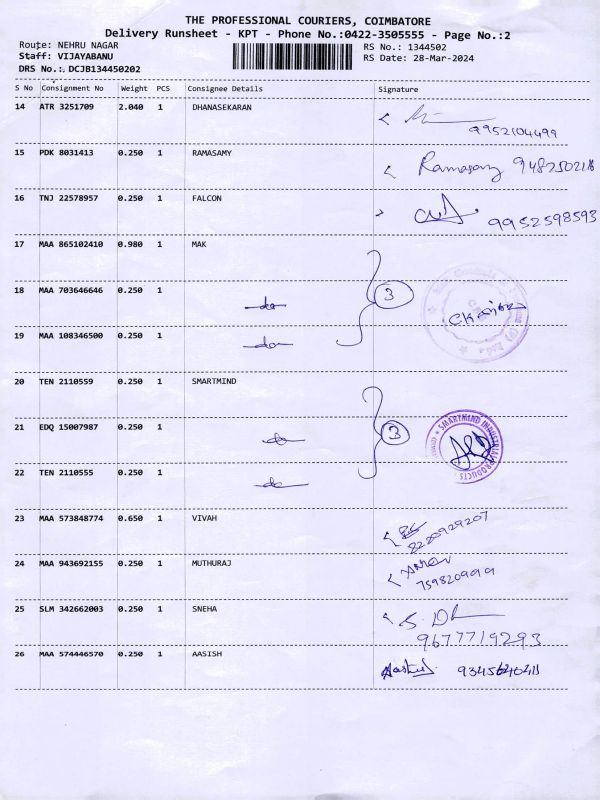 THE PROFESSIONAL COURIERS, COIMBATORE
Delivery Runsheet - KPT - Phone No.:0422-3505555 - Page No.:2
Route: NEHRU NAGAR RS No.: 1344502
Staff: VIJAYABANU RS Date: 28-Mar-2024
DRS No.:. DCJB134450202
S No Consignment No Weight PCS Consignee Details Signature
14 ATR 3251709 2.040 1 DHANASEKARAN
9952104499
15 PDK 8031413 0.250 1 RAMASAMY
Ramasamy
16 TNJ 22578957 0.250 1 FALCON
9952598593
17 MAA 865102410 0.980 1 MAK
18 MAA 703646646 0.250 1 do 3
19 MAA 108346500 0.250 1 do
20 TEN 2110559 0.250 1 SMARTMIND
21 EDQ 15007987 0.250 1 do 3 SMARTMIND INDUSTRIAL PRODUCTS
22 TEN 2110555 0.250 1 do
23 MAA 573848774 0.650 1 VIVAH
8220929207
24 MAA 943692155 0.250 1 MUTHURAJ
25 SLM 342662003 0.250 1 SNEHA
9677719293
26 MAA 574446570 0.250 1 AASISH